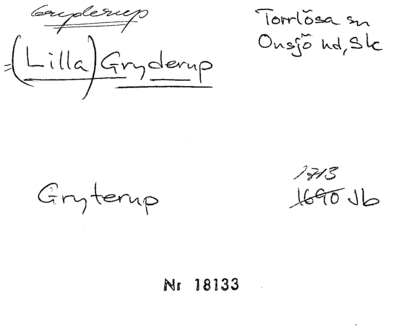 Gryderup
Torrlösa sn
Onsjö hd, Sk
=(Lilla) Gryderup
Gryterup
1713
1690 Jb
Nr 18133